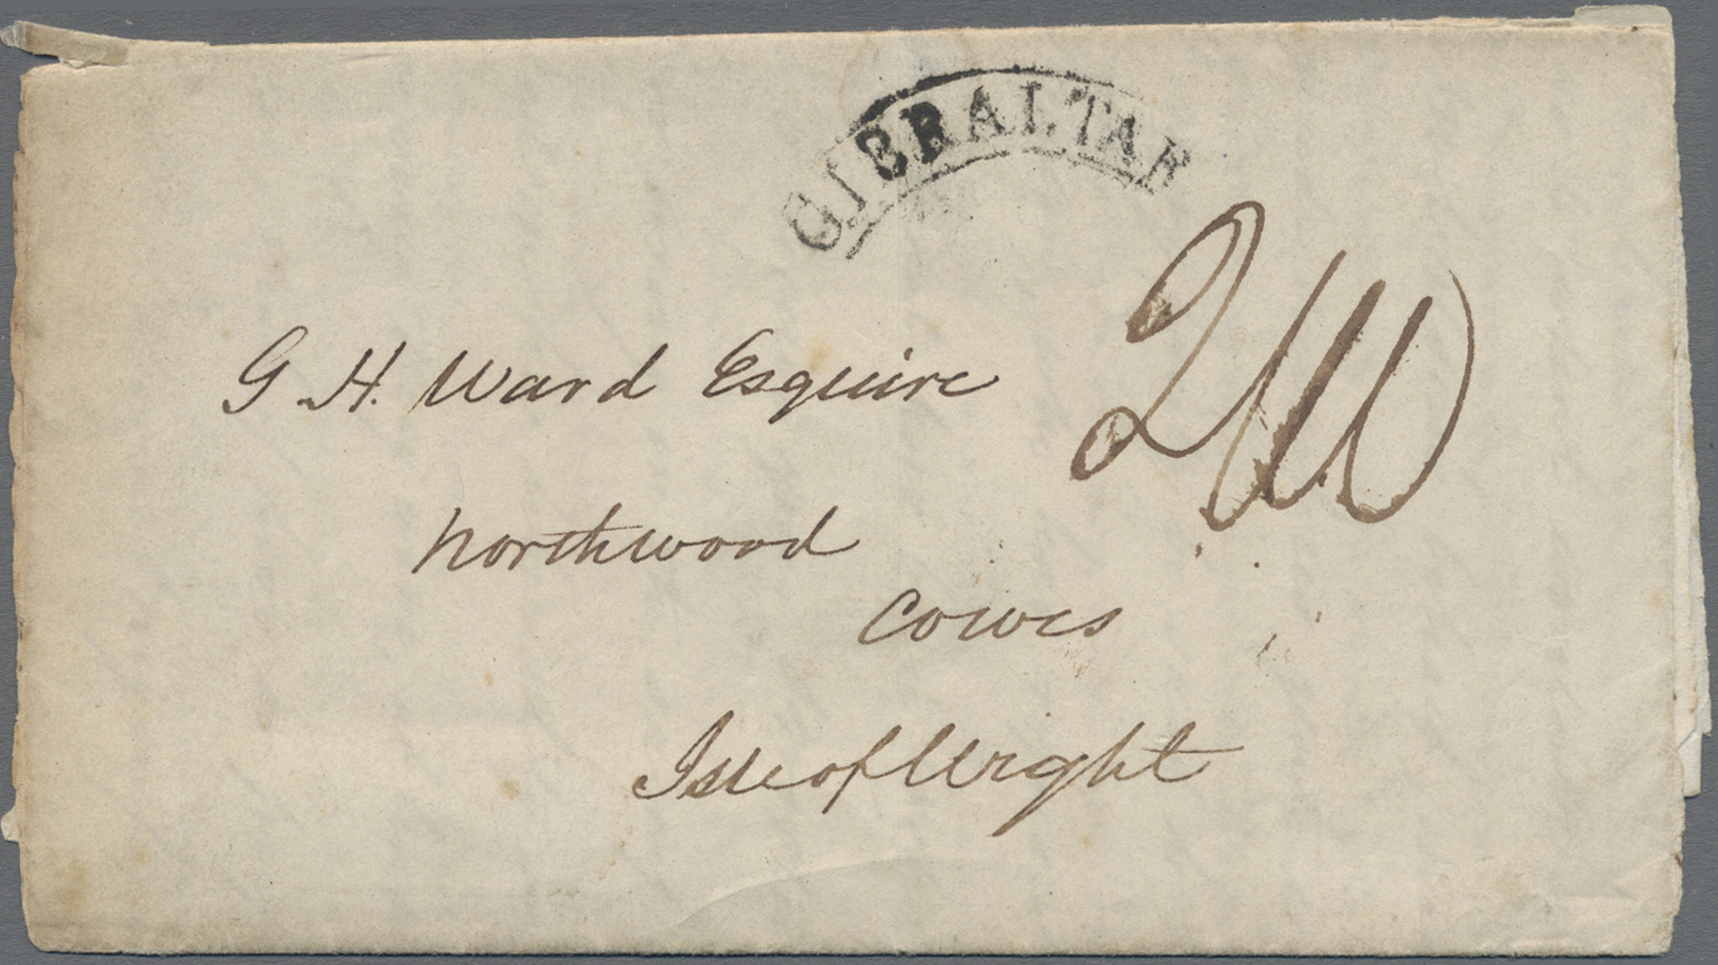 GIBRALTAR
2/10
G. H. Ward Esquire
Northwood
Cowes
Isle of Wight